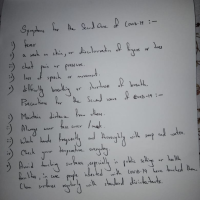 Symptoms for the Second Wave of COVID-19 :-
1) fever
2) a rash on skin, or discolouration of fingers or toes
3) chest pain or pressure.
4) loss of speech or movement.
5) difficulty breathing or shortness of breath.
Precautions for the Second wave of COVID-19 :-
1) Maintain distance from others.
2) Always wear face cover / mask.
3) Wash hands frequently and thoroughly with soap and water.
4) Check your temperature everyday.
5) Avoid touching surfaces, especially in public settings or health
facilities, in case people infected with COVID-19 have touched them.
Clean surfaces regularly with standard disinfectants.